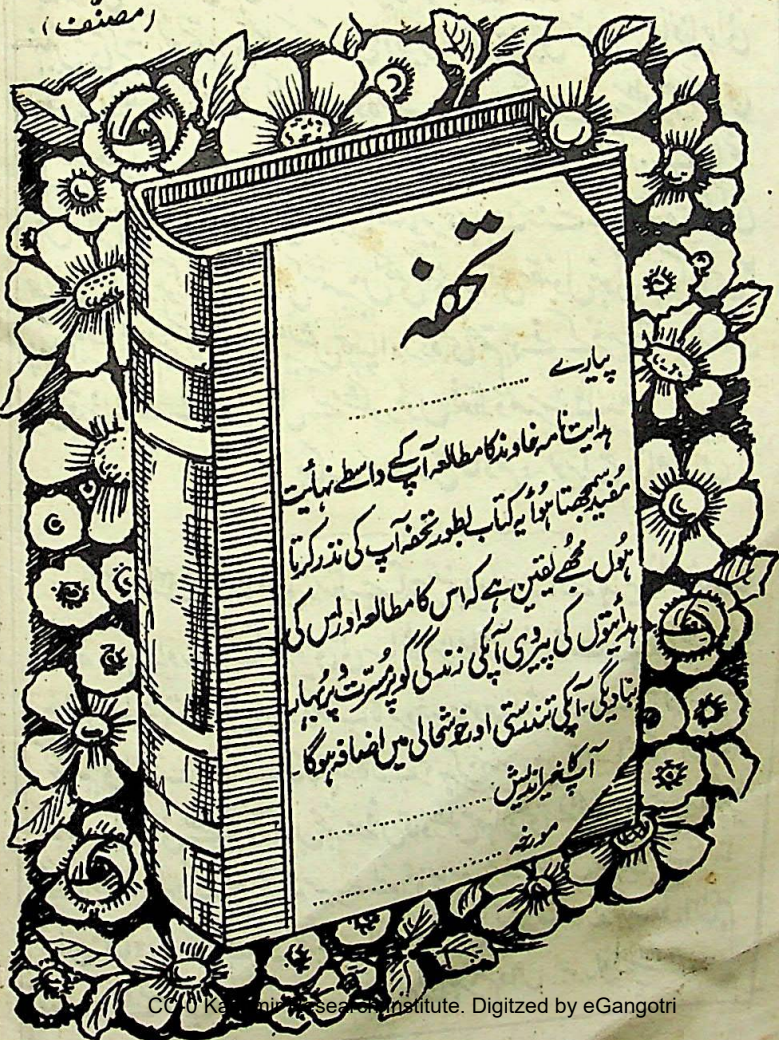 (مصنّف)
تحفہ
پیارے ........................
ہدایت نامہ خاوند کا مطالعہ آپ کے واسطے نہائیت
مُفید سمجھتا ہُوا یہ کتاب بطور تحفہ آپ کی نذر کرتا
ہُوں مجُھے یقین ہے کہ اس کا مطالعہ اور اِس کی
ہدائیتوں کی پیروی آپکی زندگی کو پُرمُسرّت و پُربُہار
بنادیگی۔ آپکی تندرستی اور خوشحالی میں اضافہ ہوگا۔
آپ کا خیراندیش ........................
مورخہ ........................
CC-0 Kashmir Research Institute. Digitzed by eGangotri